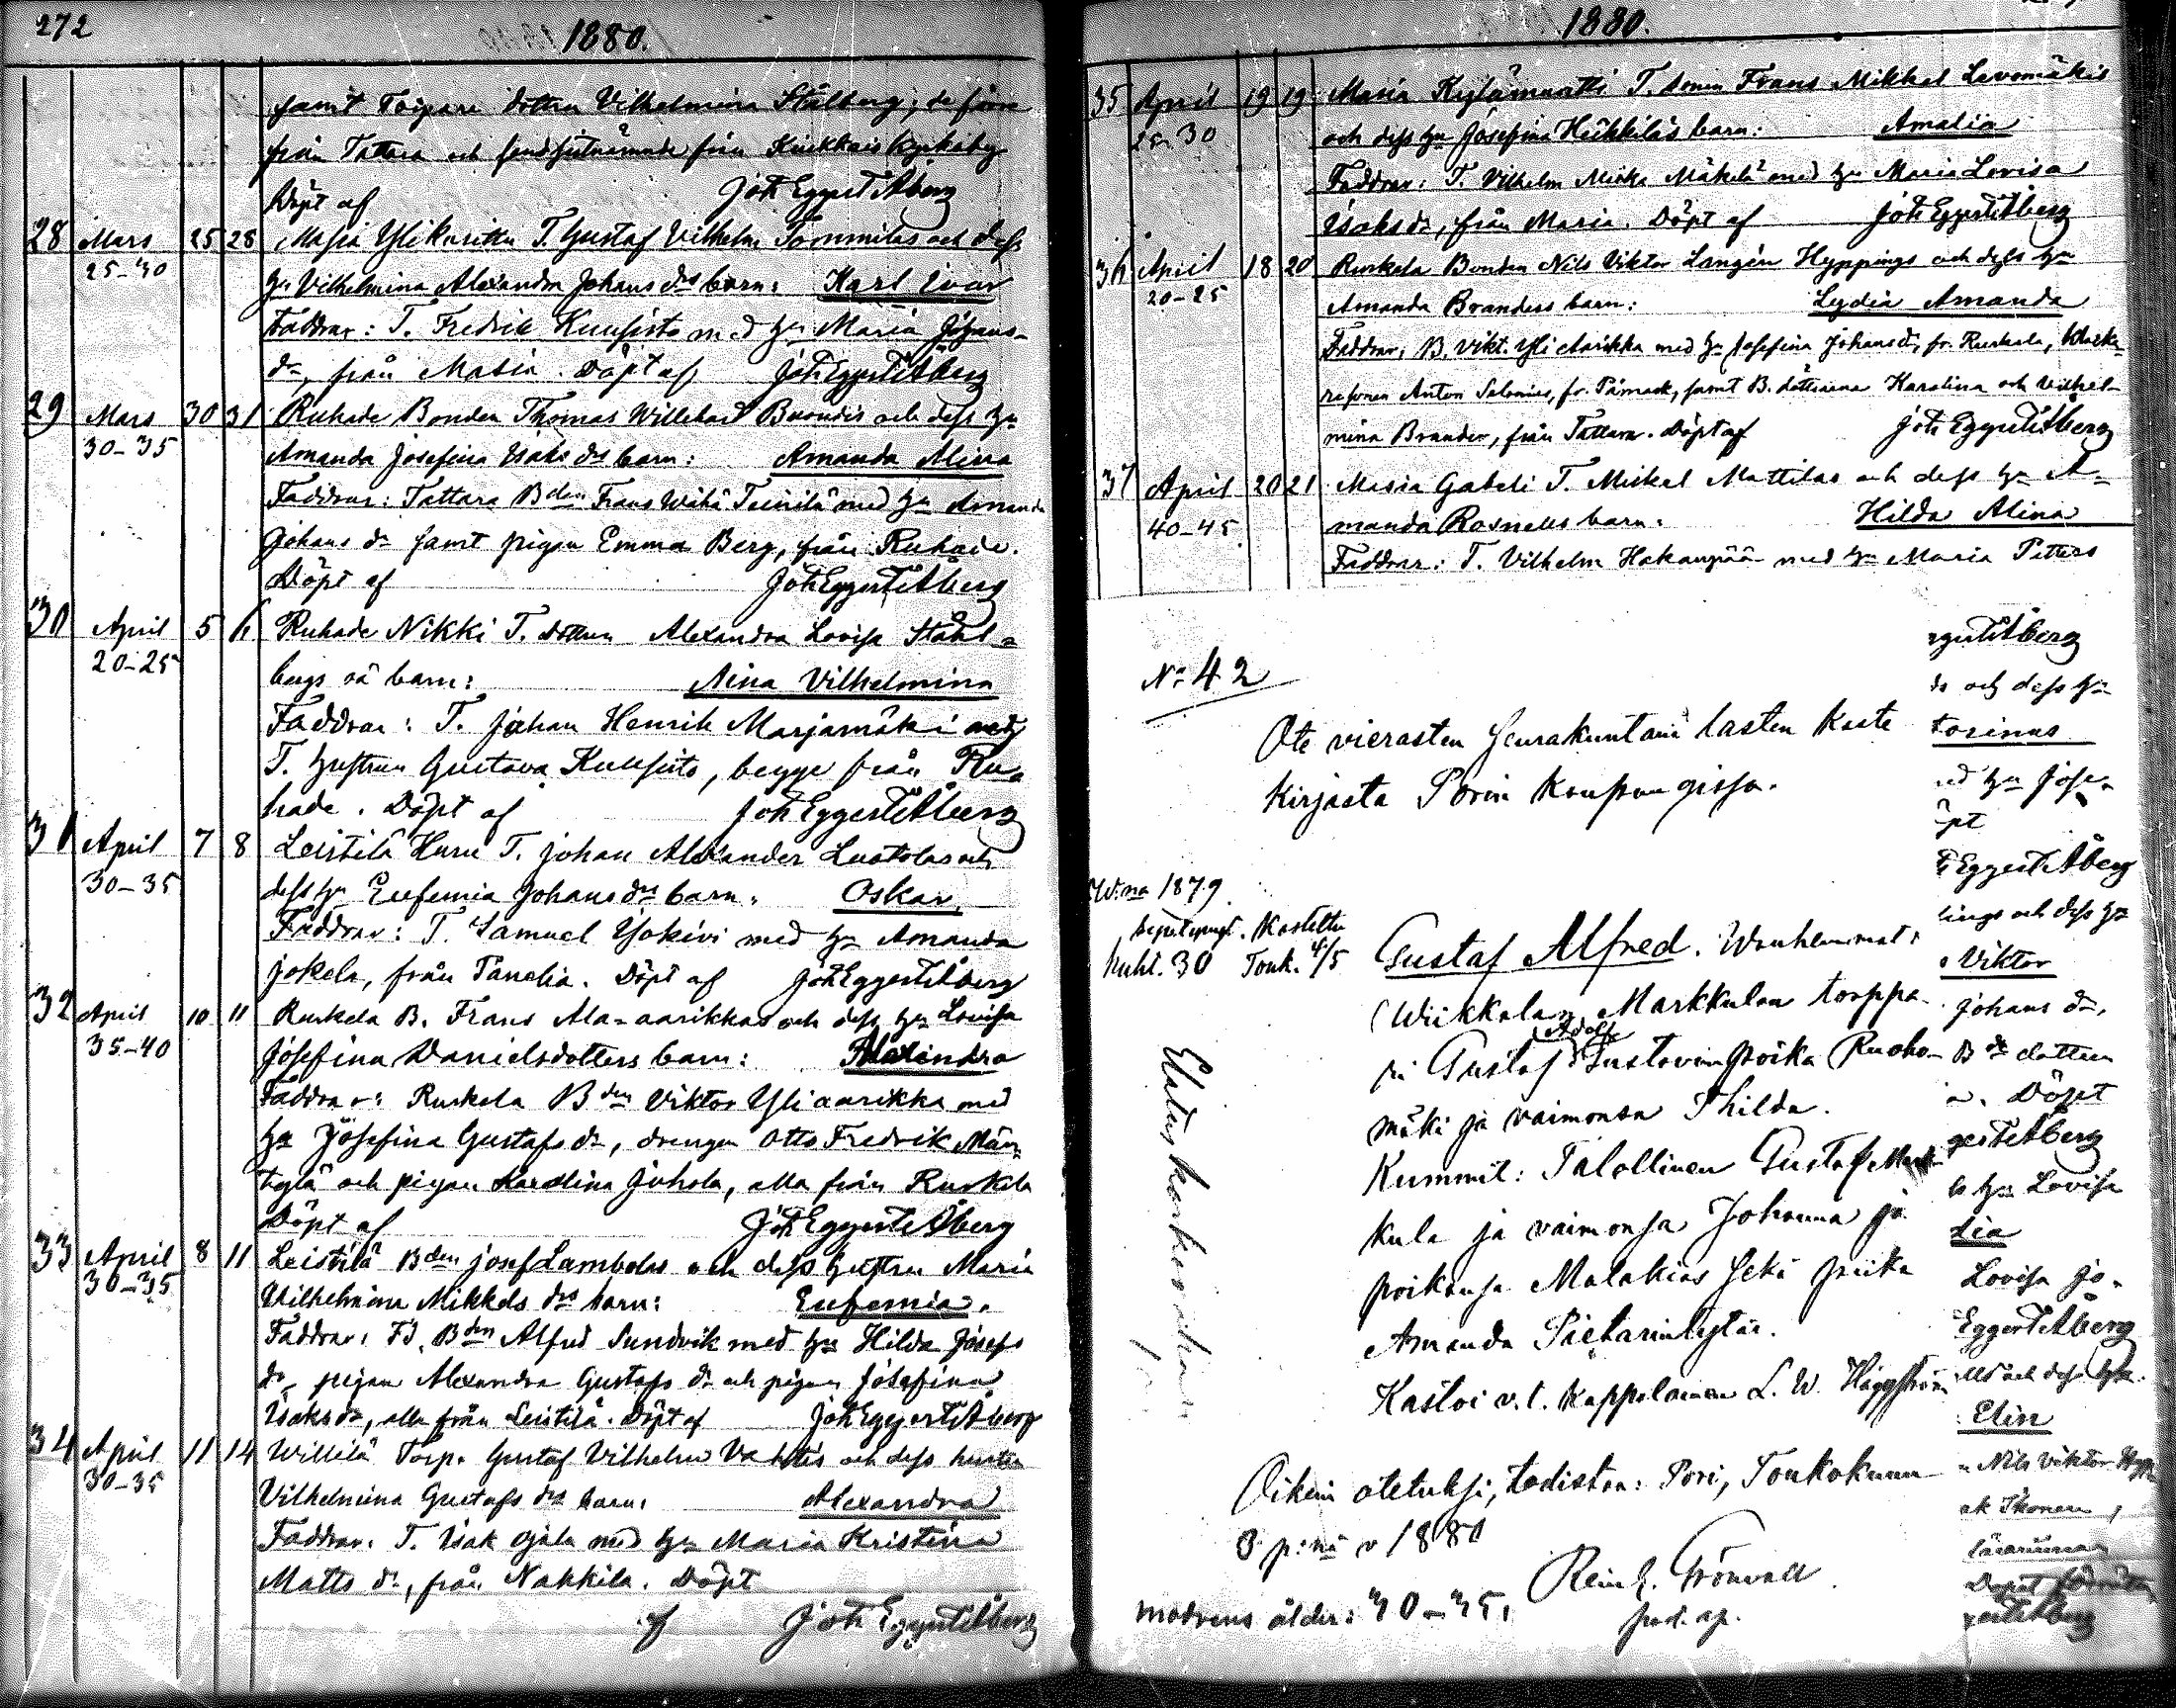 272
1880.
samt Torpare dottren Vilhelmina Stålberg, de förre
från Tattara och sendsistnämnde från Kiukkais Kyrkoby
Döpt af Joh Eggert Åberg
28 Mars 25 28 Masia Ylikaritku T. Gustaf Vilhelm Tommilas och dess
25-30 hu Vilhelmina Alexandra Johans drs barn: Karl Ivar
Faddrar: T. Fredrik Kuusisto med hu Maria Johans-
dr, från Masia. Döpt af Joh Eggert Åberg
29 Mars 30 31 Ruhade Bonden Thomas Willehad och dess hu
30-35 Amanda Josefina Isaks drs barn: Amanda Alina
Faddrar: Tattara Bden Frans Wähä Teinilä med hu Amanda
Johans dr samt pigan Emma Berg, från Ruhade.
Döpt af Joh Eggert Åberg
30 April 5 6 Ruhade Nikki T. dottren Alexandra Lovisa Ståhl-
20-25 bergs oä barn: Aina Vilhelmina
Faddrar: T. Johan Henrik Marjamäki med
T. hustrun Gustava Kuusisto, begge från Ru-
hade. Döpt af Joh Eggert Åberg
31 April 7 8 Leistilä Huru T. Johan Alexander Luotolas och
30-35 dess hu Eufemia Johans drs barn: Oskar
Faddrar: T. Samuel Isokivi med hu Amanda
Jokela, från Panelia. Döpt af Joh Eggert Åberg
32 April 10 11 Ruskela B. Frans Ala-aarikkas och dess hu Lovisa
35-40 Josefina Danielsdotters barn: Alexandra
Faddrar: Ruskela Bden Viktor Yli aarikka med
hu Josefina Gustafs dr, drengen Otto Fredrik Män-
tylä och pigan Karolina Juhola, alla från Ruskela
Döpt af Joh Eggert Åberg
33 April 8 11 Leistilä Bden Josef Lambolas och dess hustru Maria
30-35 Vilhelmina Mikkels drs barn: Eufemia.
Faddrar: Fd. Bden Alfred Sundvik med hu Hilda Josefs
dr, pigan Alexandra Gustafs dr och pigan Josefina
Isaks dr, alla från Leistilä. Döpt af Joh Eggert Åberg
34 April 11 14 Willilä Torp. Gustaf Vilhelm och dess hustru
30-35 Vilhelmina Gustafs drs barn: Alexandra
Faddrar: T. Isak Ojala med hu Maria Kristina
Matts dr, från Nakkila. Döpt
af Joh Eggert Åberg
1880.
35 April 19 19 Masia Kylämaatti T. sonen Frans Mikkel Levomäkis
25-30 och dess hu Josefina Heikkiläs barn: Amalia
Faddrar: T. Vilhelm Miska Mäkelä med hu Maria Lovisa
Isaks dr, från Masia. Döpt af Joh Eggert Åberg
36 April 18 20 Ruskela Bonden Nils Viktor Langén Hyppings och dess hu
20-25 Amanda Branders barn: Lydia Amanda
Faddrar: B. Vikt. Yli Aarikka med hu Josefina Johans dr, fr. Ruskela,
Anton Salonius, fr. Pämark, samt B. döttrarna Karolina och Vilhel-
mina Brander, från Tattara. Döpt af Joh Eggert Åberg
37 April 20 21 Masia Gabeli T. Mickel Mattilas och dess hu A-
40-45 manda Rosnells barn: Hilda Alina
Faddrar: T. Vilhelm Hakanpää med hu Maria Petters
No 42
Ote vierasten seurakuntain lasten kaste
kirjasta Porin kaupungissa.
W:na 1879.
Kastettu
huht. 30 Touk. 4/5 Gustaf Alfred. Wanhemmat:
(Wiikkalan Markkulan torppa-
ri Gustaf Adolf Gustavinpoika Ruoho-
mäki ja vaimonsa Thilda.
Kummit: Talollinen Gustaf Mark-
kula ja vaimonsa Johanna ja
poikansa Malakias sekä piika
Amanda Pietarintytär.
Kastoi v.t. kappalainen L. W. Häggström
Oikein otetuksi, todistaa: Pori, Toukokuun
3 p:nä v 1880
Reinh. Grönvall
modrens ålder: 30-35,
ggert Åberg
och dess hu
torinus
ed hu Jose-
öpt
Eggert Åberg
lings och dess hu
Viktor
Johans dr,
Bds dottren
Döpt
gert Åberg
hu Lovisa
dia
Lovisa Jo-
Eggert Åberg
och dess hu
Elin
Nils Viktor Hypp
Ikonen,
Döpt
gert Åberg